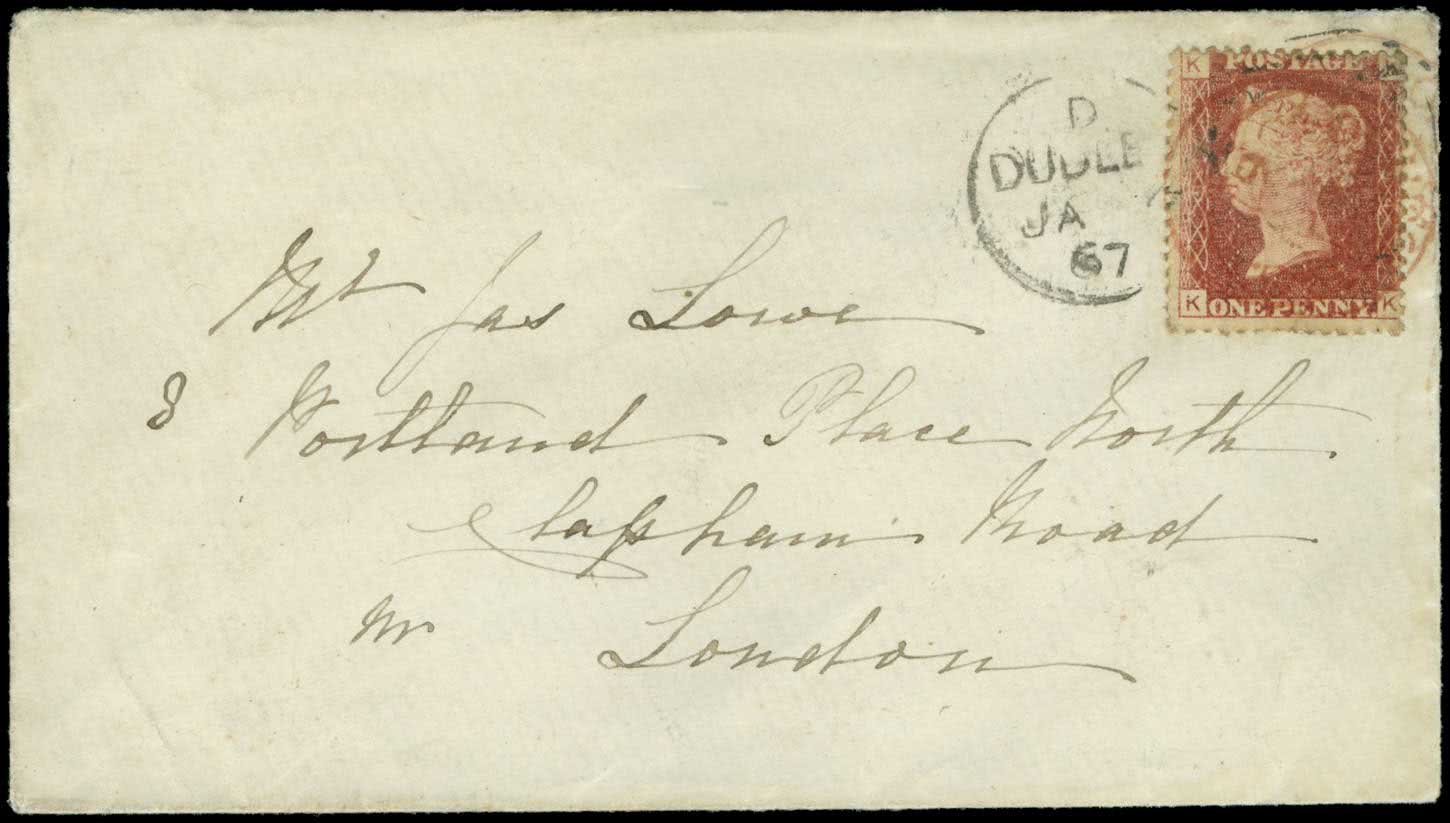 K POSTAGE
D
DUDLE
JA
67
K ONE PENNY. K
Mr Jas Lowe
8 Portland Place North
Clapham Road
Nr London